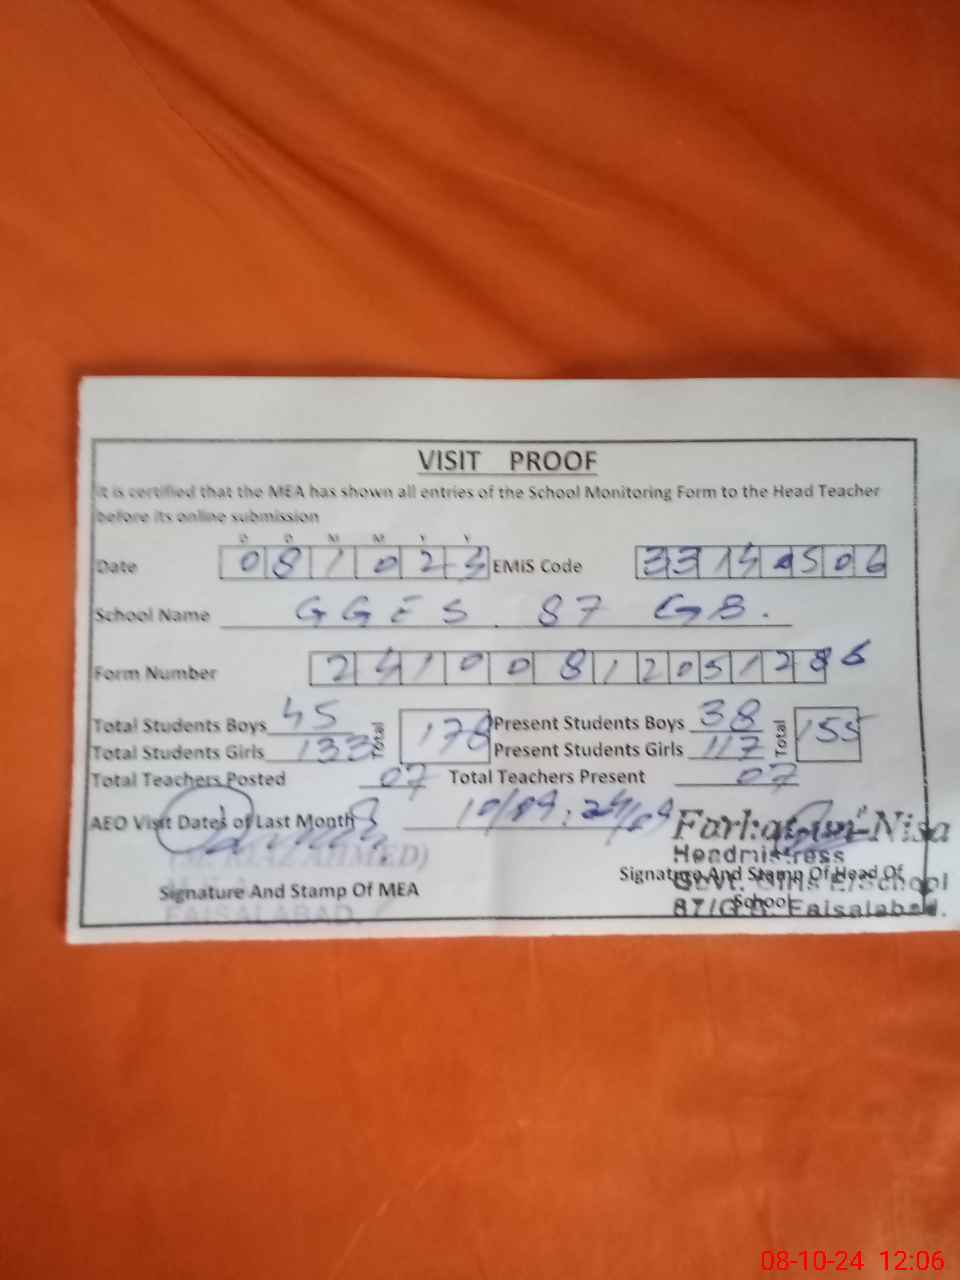 VISIT PROOF
It is certified that the MEA has shown all entries of the School Monitoring Form to the Head Teacher
before its online submission
D D M M Y Y
Date 081024 EMIS Code 33140506
School Name GGES 87 GB.
Form Number 2410081205128 6
Total Students Boys 45 Total 178 Present Students Boys 38 Total 155
Total Students Girls 133 Present Students Girls 117
Total Teachers Posted 07 Total Teachers Present 07
AEO Visit Dates of Last Month 10/09 : 24/09
Farhat-un-Nisa
Headmistress
Govt. Girls E/School
87/G.B. Faisalabad.
AHMED)
Signature And Stamp Of MEA
FAISALABAD.
Signature And Stamp Of Head Of
School
08-10-24 12:06